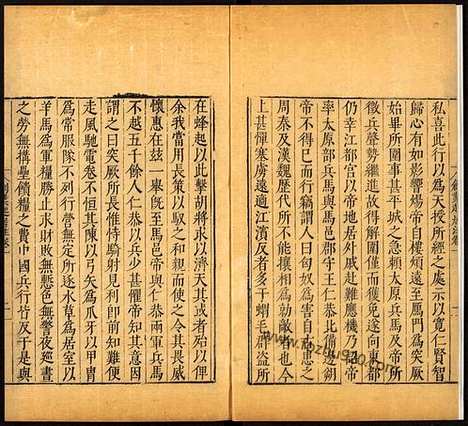 私喜此行以為天授所經之處示以寬仁賢智
歸心有如影響煬帝自樓煩遠至雁門為突厥
始畢所圍事甚平城之急賴太原兵馬及帝所
徵兵聲勢繼進故得解圍僅而獲免遂向東都
仍幸江都宮以帝地居外戚赴難應機乃詔帝
率太原部兵馬與馬邑郡守王仁恭北備邊朔
帝不得已而行竊謂人曰匈奴為害自古患之
周秦及漢魏歷代所不能攘相為勍敵者也今
上甚憚塞虜遠適江濱反者多于蝟毛羣盜所
在蜂起以此擊胡將求以濟天其或者殆以俾
余我當用長策以馭之和親而使之令其畏威
懷惠在茲一舉旣至馬邑帝與仁恭兩軍兵馬
不越五千餘人仁恭以兵少甚懼帝知其意因
謂之曰突厥所長惟恃騎射見利卽前知難便
走風馳電卷不恒其陳以弓矢為爪牙以甲冑
為常服隊不列行營無定所逐水草為居室以
羊馬為軍糧勝止求財敗無慙色無警夜巡晝
之勞無搆壘饋糧之費中國兵行皆反于是與